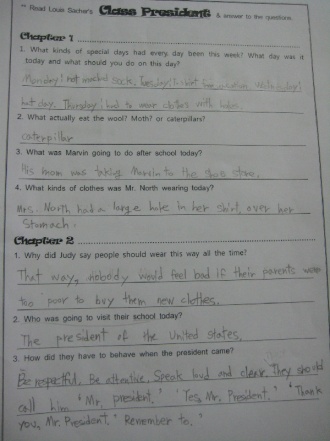 Read Louis Sachar's Class President & answer to the questions.
Chapter 1
1. What kinds of special days had every day been this week? What day was it
today and what should you do on this day?
Monday: not matched sock, Tuesday:
hat day. Thursday: had to wear clothes with holes.
2. What actually eat the wool? Moth? or caterpillars?
caterpillar
3. What was Marvin going to do after school today?
His mom was taking Marvin to the shoe store.
4. What kinds of clothes was Mr. North wearing today?
Mrs. North had a large hole in her shirt over her
stomach.
Chapter 2
1. Why did Judy say people should wear this way all the time?
That way, nobody would feel bad if their parents were
too pour to buy them new clothes.
2. Who was going to visit their school today?
The president of the United states.
3. How did they have to behave when the president came?
Be respectful, Be attentive, Speak loud and clear. They should
call him "Mr. president." "Yes, Mr. President." "Thank
you, Mr. President." Remember to. "